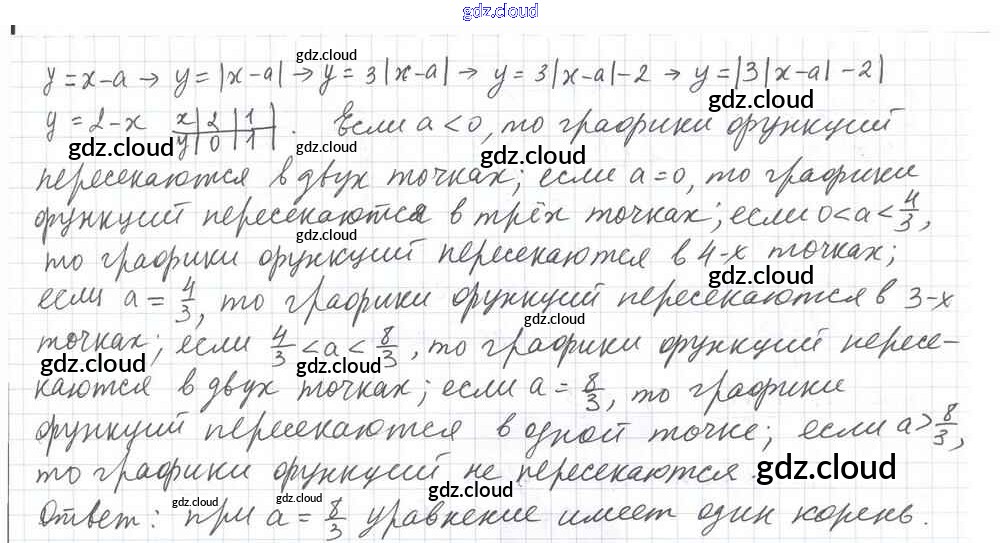 gdz.cloud
gdz.cloud
y = x-a → y = |x-a| → y = 3|x-a| → y = 3|x-a|-2 → y = |3|x-a|-2|
gdz.cloud
gdz.cloud
y = 2-x x|2|1| y|0|1| . Если a<0, то графики функций
gdz.cloud gdz.cloud gdz.cloud
пересекаются в двух точках; если a=0, то графики
gdz.cloud
функций пересекаются в трёх точках; если 0<a<4/3,
gdz.cloud
то графики функций пересекаются в 4-х точках;
gdz.cloud
если a = 4/3, то графики функций пересекаются в 3-х
gdz.cloud
точках; если 4/3 < a < 8/3, то графики функций пересе-
gdz.cloud gdz.cloud
каются в двух точках; если a = 8/3, то графики
gdz.cloud
функций пересекаются в одной точке; если a > 8/3,
то графики функций не пересекаются.
gdz.cloud
gdz.cloud gdz.cloud
Ответ: при a = 8/3 уравнение имеет один корень.
gdz.cloud